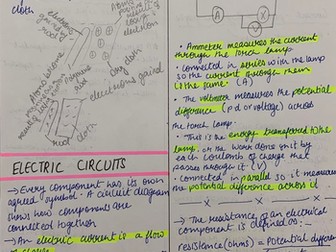 cloth
electrons
gained
rod
electron
dry cloth
electrons gained
rod
cloth
ELECTRIC CIRCUITS
→ Every component has its own
agreed symbol - A circuit diagram
shows how components are
connected together
→ An electric current is a flow
A
X
• Ammeter measures the current
through the torch lamp
• connected in series with the lamp
so the current through them
is the same. (A)
• The voltmeter measures the potential
difference (p.d or voltage) across
the torch lamp.
• This is the energy transferred to the
lamp or the work done on it by
each coulomb of charge that
passes through it (V)
• connected in parallel so it measures
the potential difference across it
X X X
→ The resistance of an electrical
component is defined as:
resistance (ohms) = Potential difference